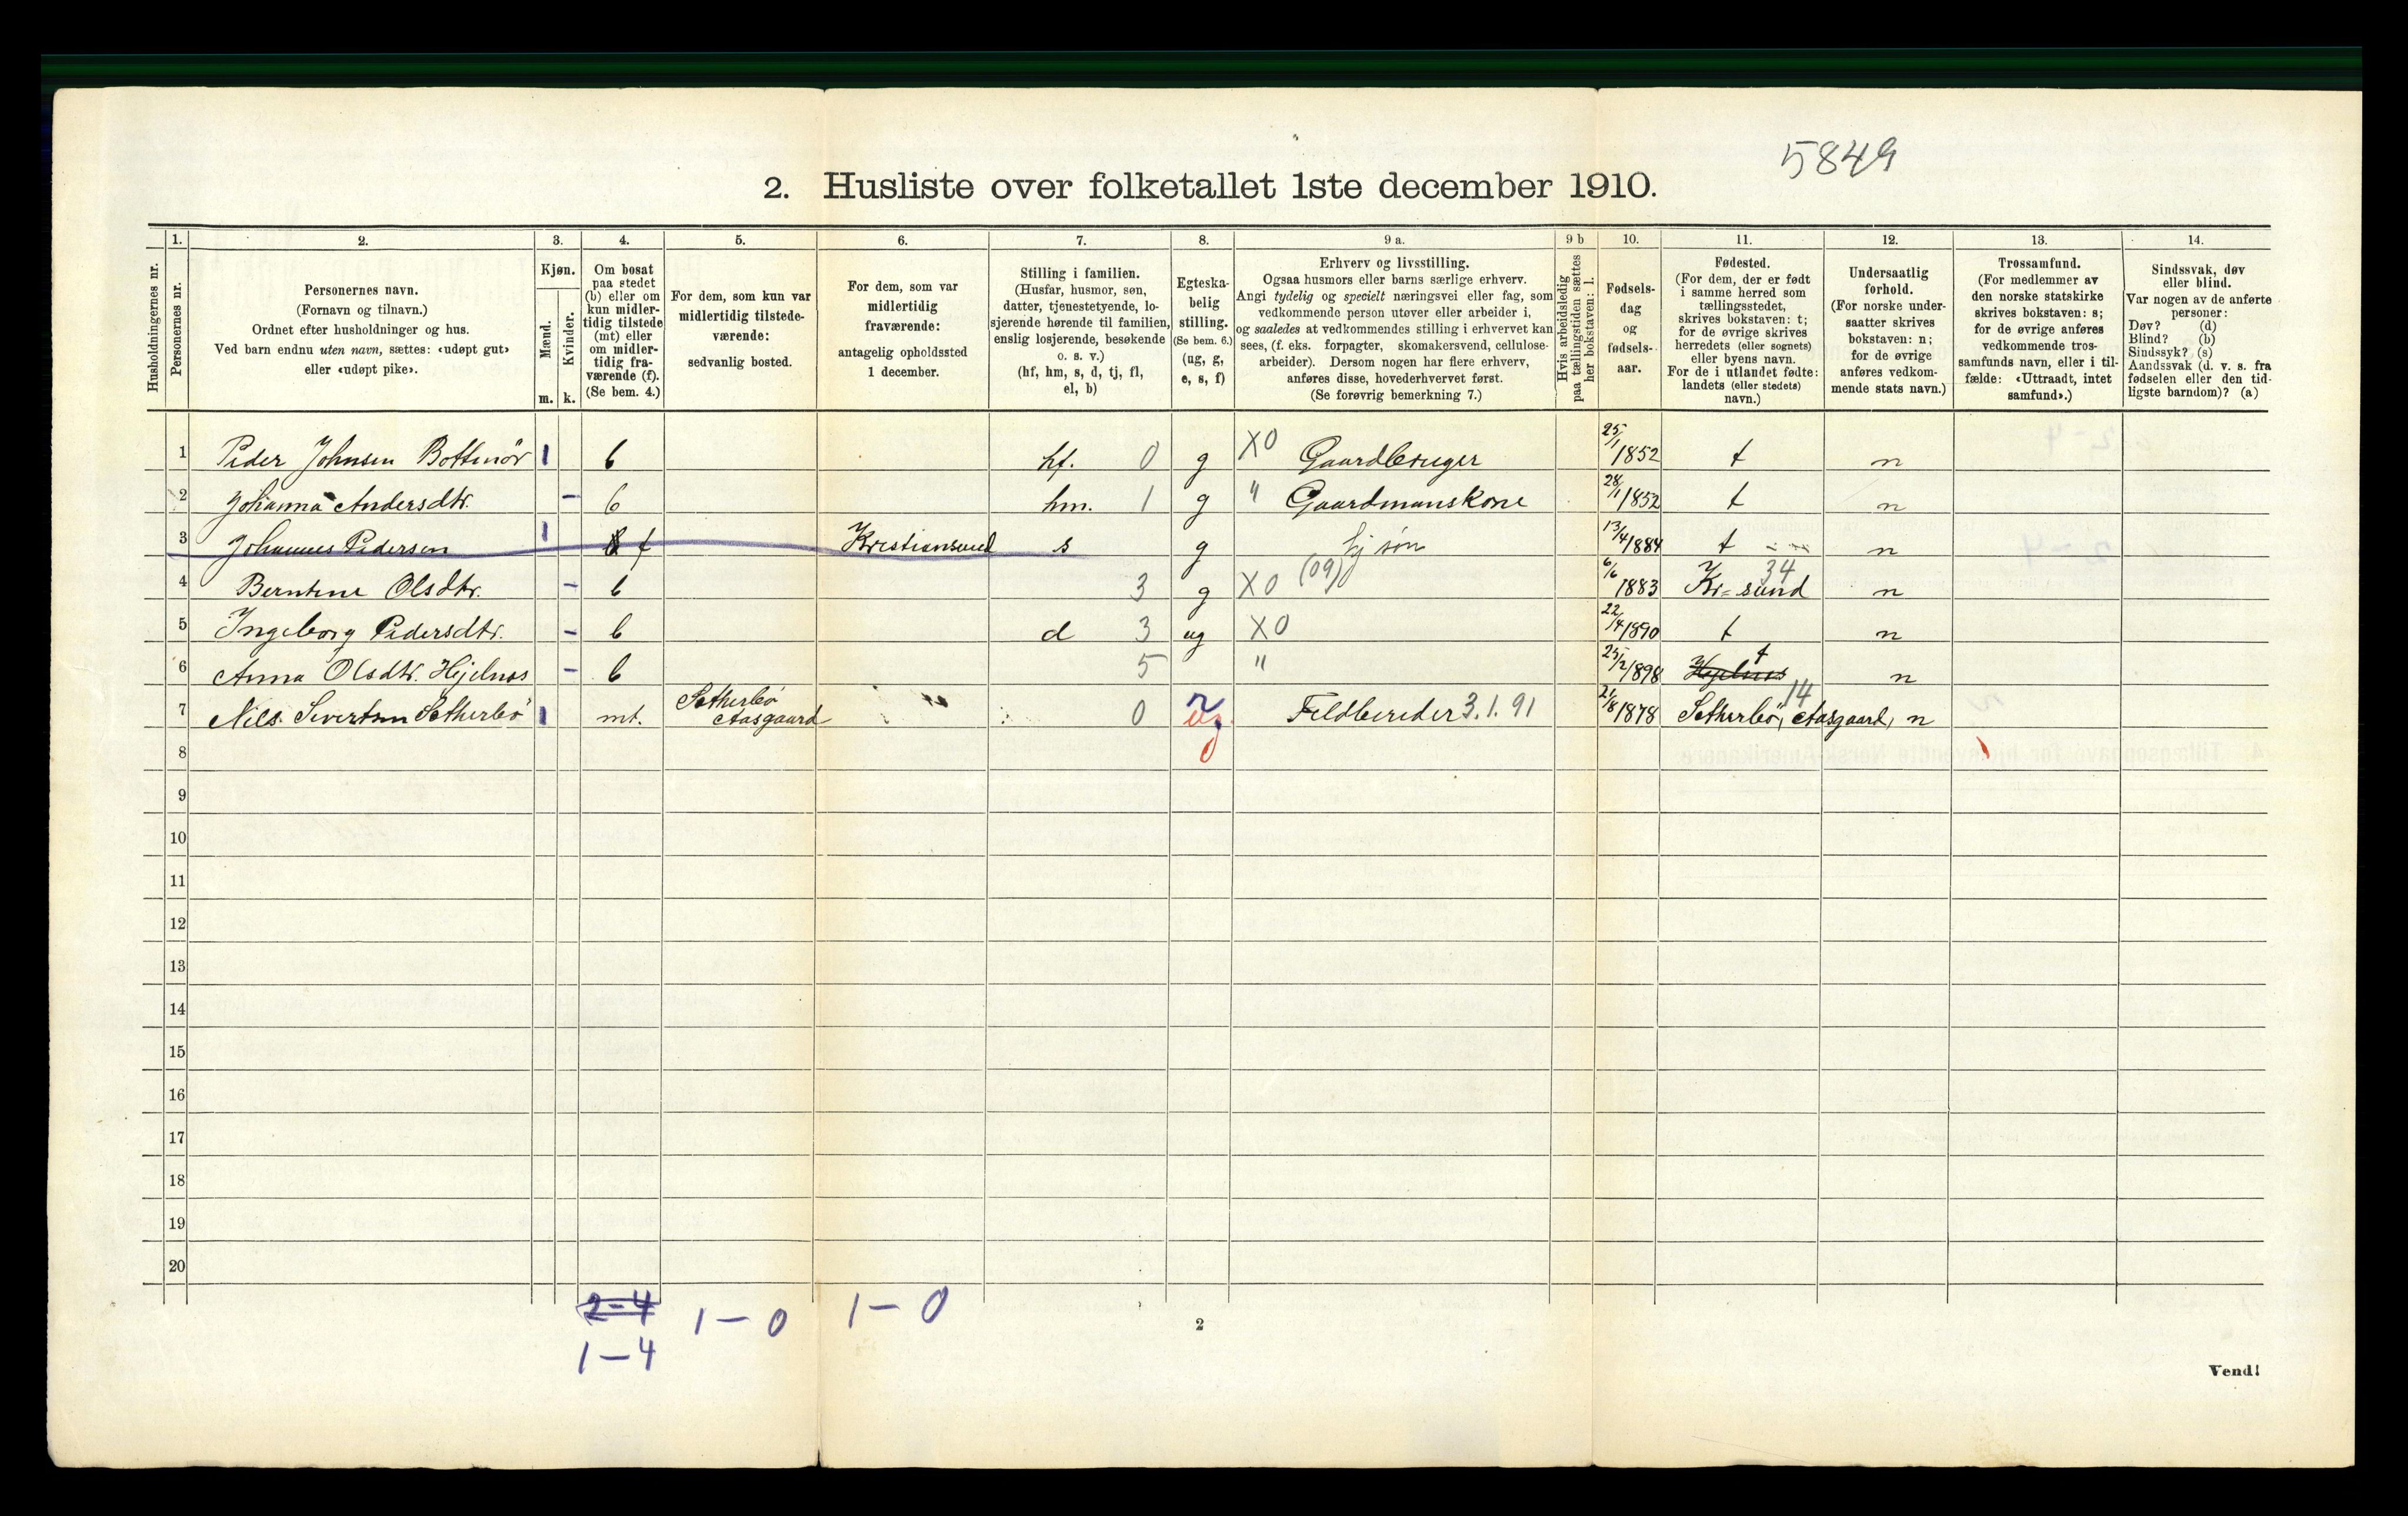 5849
2. Husliste over folketallet 1ste december 1910.
1. 2. 3. 4. 5. 6. 7. 8. 9 a. 9 b 10. 11. 12. 13. 14.
Husholdningernes nr.
Personernes nr.
Personernes navn.
(Fornavn og tilnavn.)
Ordnet efter husholdninger og hus.
Ved barn endnu uten navn, sættes: «udøpt gut»
eller «udøpt pike».
Kjøn.
Mænd.
Kvinder.
m. k.
Om bosat
paa stedet
(b) eller om
kun midler-
tidig tilstede
(mt) eller
om midler-
tidig fra-
værende (f).
(Se bem. 4.)
For dem, som kun var
midlertidig tilstede-
værende:
sedvanlig bosted.
For dem, som var
midlertidig
fraværende:
antagelig opholdssted
1 december.
Stilling i familien.
(Husfar, husmor, søn,
datter, tjenestetyende, lo-
sjerende hørende til familien,
enslig losjerende, besøkende
o. s. v.)
(hf, hm, s, d, tj, fl,
el, b)
Egteska-
belig
stilling.
(Se bem. 6.)
(ug, g,
e, s, f)
Erhverv og livsstilling.
Ogsaa husmors eller barns særlige erhverv.
Angi tydelig og specielt næringsvei eller fag, som
vedkommende person utøver eller arbeider i,
og saaledes at vedkommendes stilling i erhvervet kan
sees, (f. eks. forpagter, skomakersvend, cellulose-
arbeider). Dersom nogen har flere erhverv,
anføres disse, hovederhvervet først.
(Se forøvrig bemerkning 7.)
Hvis arbeidsledig
paa tællingstiden sættes
her bokstaven: l.
Fødsels-
dag
og
fødsels-
aar.
Fødested.
(For dem, der er født
i samme herred som
tællingsstedet,
skrives bokstaven: t;
for de øvrige skrives
herredets (eller sognets)
eller byens navn.
For de i utlandet fødte:
landets (eller stedets)
navn.)
Undersaatlig
forhold.
(For norske under-
saatter skrives
bokstaven: n;
for de øvrige
anføres vedkom-
mende stats navn.)
Trossamfund.
(For medlemmer av
den norske statskirke
skrives bokstaven: s;
for de øvrige anføres
vedkommende tros-
samfunds navn, eller i til-
fælde: «Uttraadt, intet
samfund».)
Sindssvak, døv
eller blind.
Var nogen av de anførte
personer:
Døv? (d)
Blind? (b)
Sindssyk? (s)
Aandssvak (d. v. s. fra
fødselen eller den tid-
ligste barndom)? (a)
1 Peder Johnsen Bottenör 1 b hf. 0 g X0 Gaardbruger 25/1 1852 t n
2 Johanna Andersdtr. - b hm. 1 g " Gaardmanskone 28/1 1852 t n
3 Johannes Pedersen 1 f Kristiansund s g hj søn 13/4 1884 t n
4 Berntine Olsdtr. - b 3 g X0 (09) 6/6 1883 Kr=sund 34 n
5 Ingeborg Pedersdtr. - b d 3 ug X0 22/4 1890 t n
6 Anna Olsdtr. Hjelnes - b 5 " 25/2 1898 Hjelnes t n
7 Nils Sivertsen Sætherbö 1 mt. Sætherbö Aasgaard 0 ug Feldbereder 3.1.91 21/8 1878 Sætherbö, Aasgaard, 14 n
8
9
10
11
12
13
14
15
16
17
18
19
20
2-4 1-0 1-0
1-4
2
Vend!